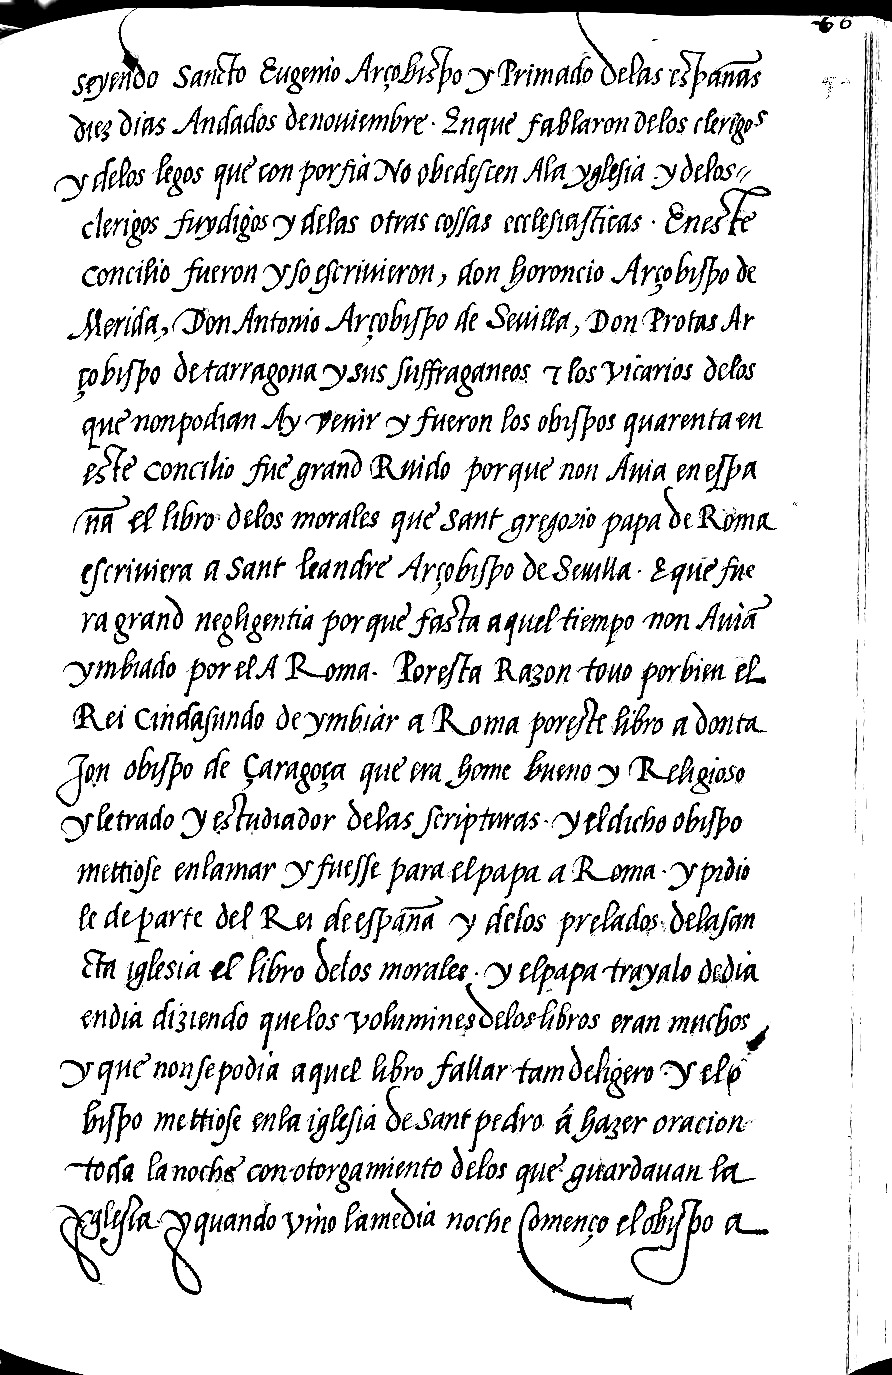 66
seyendo Sancto Eugenio Arçobispo y Primado delas españas
diez dias Andados denouiembre. Enque fablaron delos clerigos
y delos legos que con porfia No obedescen Ala yglesia y delos
clerigos fuydigos y delas otras cossas ecclesiasticas. Eneste
concilio fueron y so escriuieron, don horoncio Arçobispo de
Merida, Don Antonio Arçobispo de Seuilla, Don Protas Ar
çobispo detarragona y sus suffraganeos τ los vicarios delos
que nonpodian Ay venir y fueron los obispos quarenta en
este concilio fue grand Ruido porque non Auia en espa
ña el libro delos morales que sant gregorio papa de Roma
escriuiera a sant leandre Arçobispo de Seuilla. E que fue
ra grand negligentia porque fasta aquel tiempo non Auia
ymbiado por el A Roma. Poresta Razon touo porbien el
Rei Cindasundo de ymbiar a Roma poreste libro a donta
Jon obispo de Çaragoça que era home bueno y Religioso
y letrado y estudiador delas scripturas. y el dicho obispo
mettiose enlamar y fuesse para el papa a Roma. y pidio
le de parte del Rei de españa y delos prelados delasan
cta iglesia el libro delos morales. y elpapa trayalo dedia
endia diziendo quelos volumines deloslibros eran muchos
y que nonsepodia aquel libro fallar tam deligero y el o
bispo mettiose enla iglesia de sant pedro á hazer oracion
toda lanoche con otorgamiento delos que guardauan la
yglesia y quando vino lamedia noche Començo el obispo a